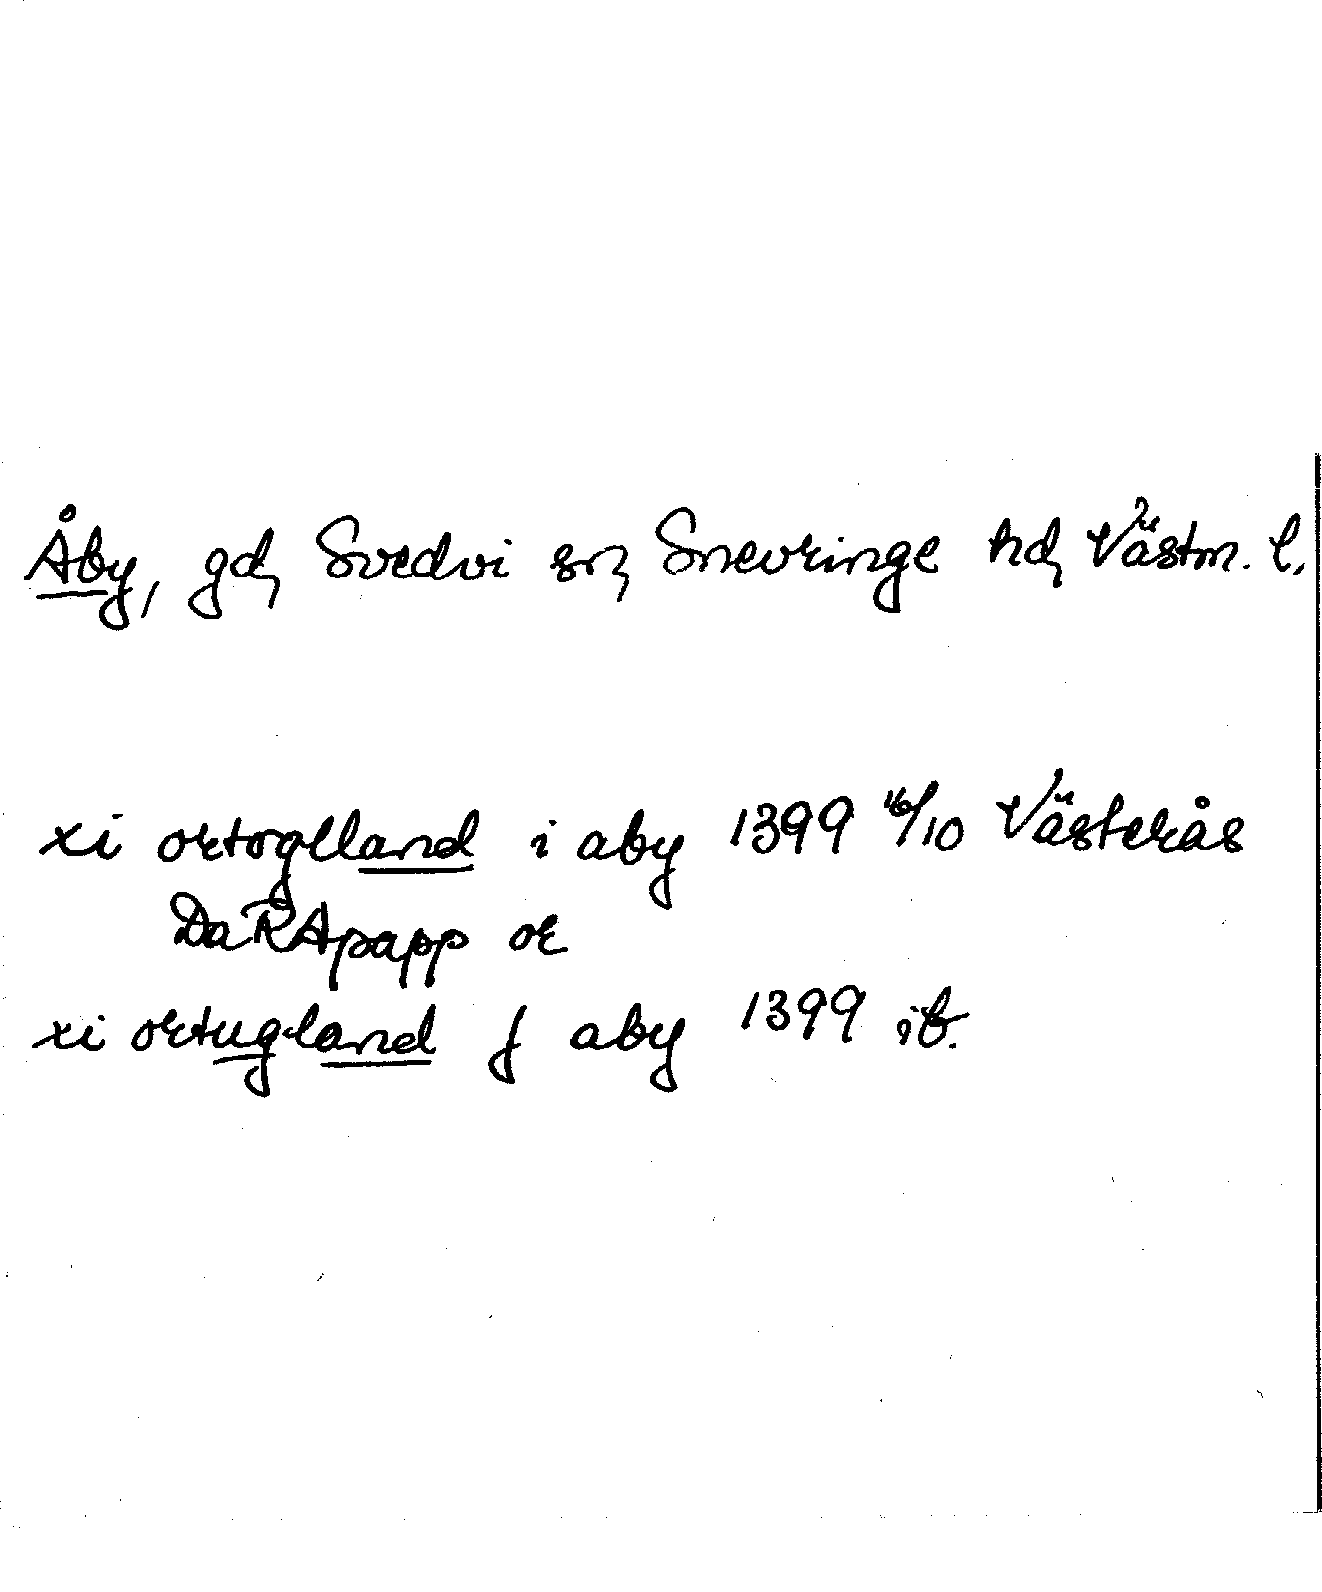 Åby, gd, Svedvi sn, Snevringe hd, Västm. l.
xi ortoglland i aby 1399 16/10 Västerås
DaRApapp or
xi ortugland j aby 1399 ib.